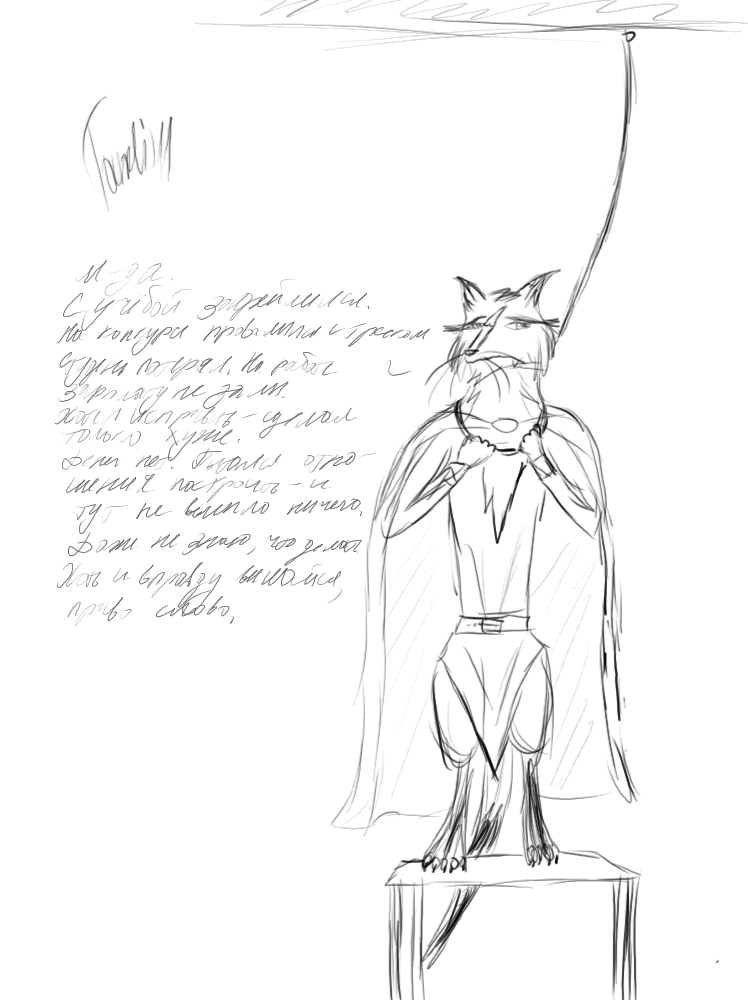 М-да.
С учёбой задолбался.
На конкурсе провалился с треском
потерял. На работе
зарплату не дали.
Хотел исправить - сделал
только хуже.
Денег нет. Пытался отно-
шения построить - и
тут не вышло ничего.
Даже не знаю, что делать
Хоть и вправду вешайся,
право слово.